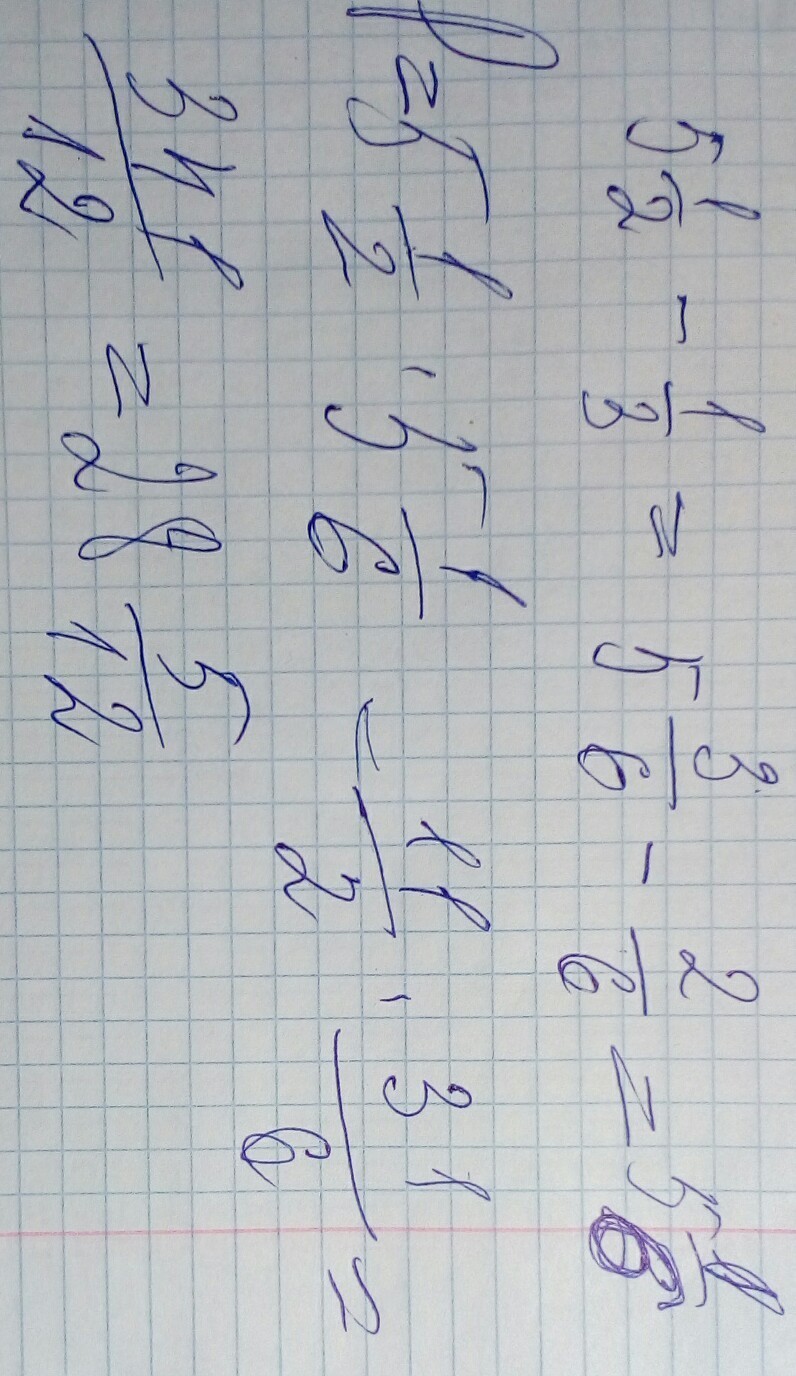 5 1/2 - 1/3 = 5 3/6 - 2/6 = 5 1/6
= 5 1/2 · 5 1/6 = 11/2 · 31/6 =
341/12 = 28 5/12